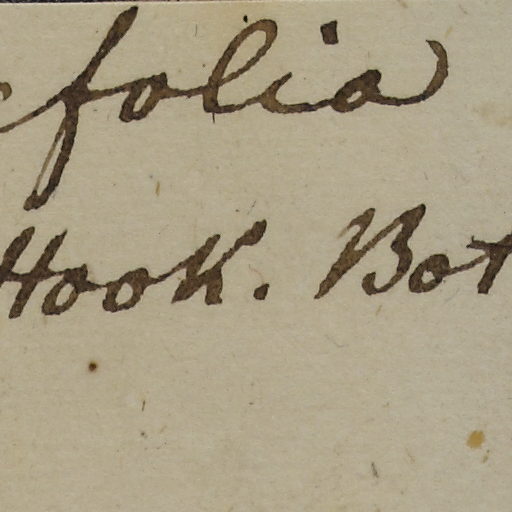 folia
Hook. Bot